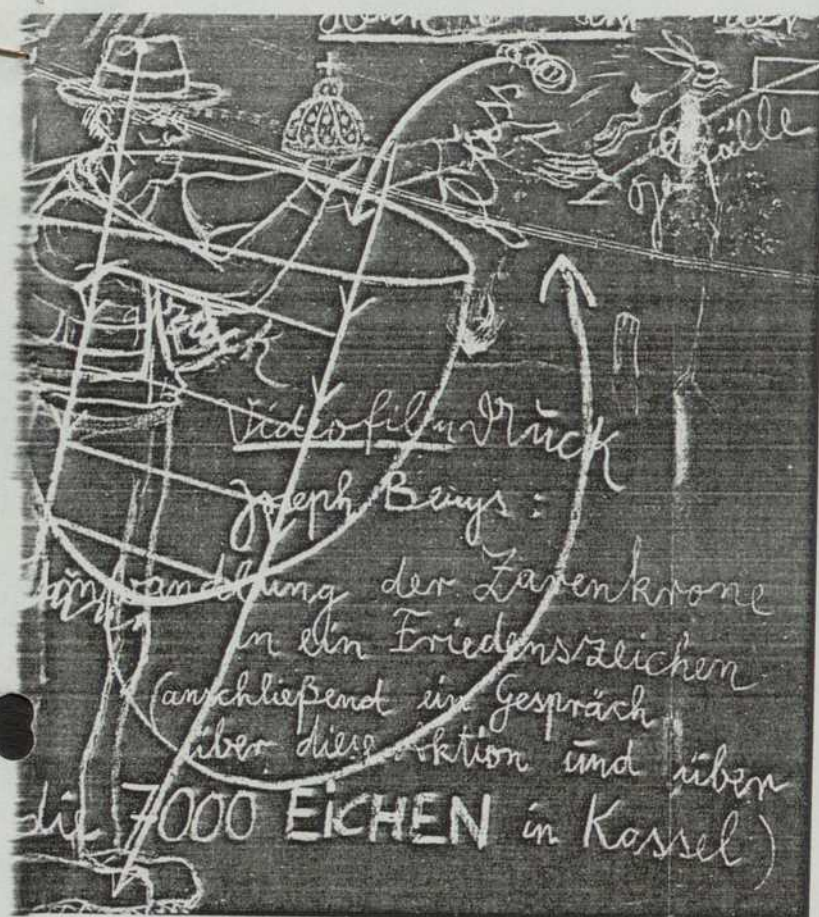 Gefälle
Videofilm Druck
Joseph Beuys:
Umwandlung der Zarenkrone
in ein Friedenszeichen
(anschließend ein Gespräch
über diese Aktion und über
die 7000 EICHEN in Kassel)